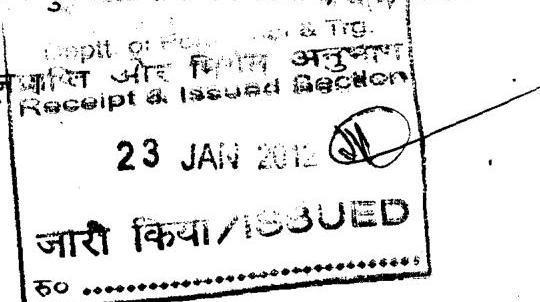 Deptt. of & Trg.
प्राप्ति और निर्गम अनुभाग
Receipt & Issued Section
23 JAN 2012
जारी किया/ISSUED
रु०